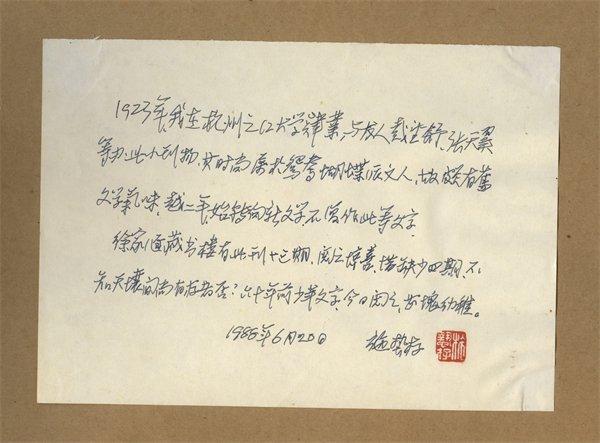 1923年,我在杭州之江大学肄業,与友人戴望舒、张天翼
等办此小刊物,其时尚属於鸳鸯蝴蝶派文人,故颇有舊
文学氣味,越二年,始转向新文学,不復作此等文字.
徐家匯藏书楼有此刊十三期,阅之惊喜,惜缺少四期,不
知天壤间尚有存者否?六十年前少年文字,今日阅之,甚愧幼稚。
1986年6月20日 施蛰存